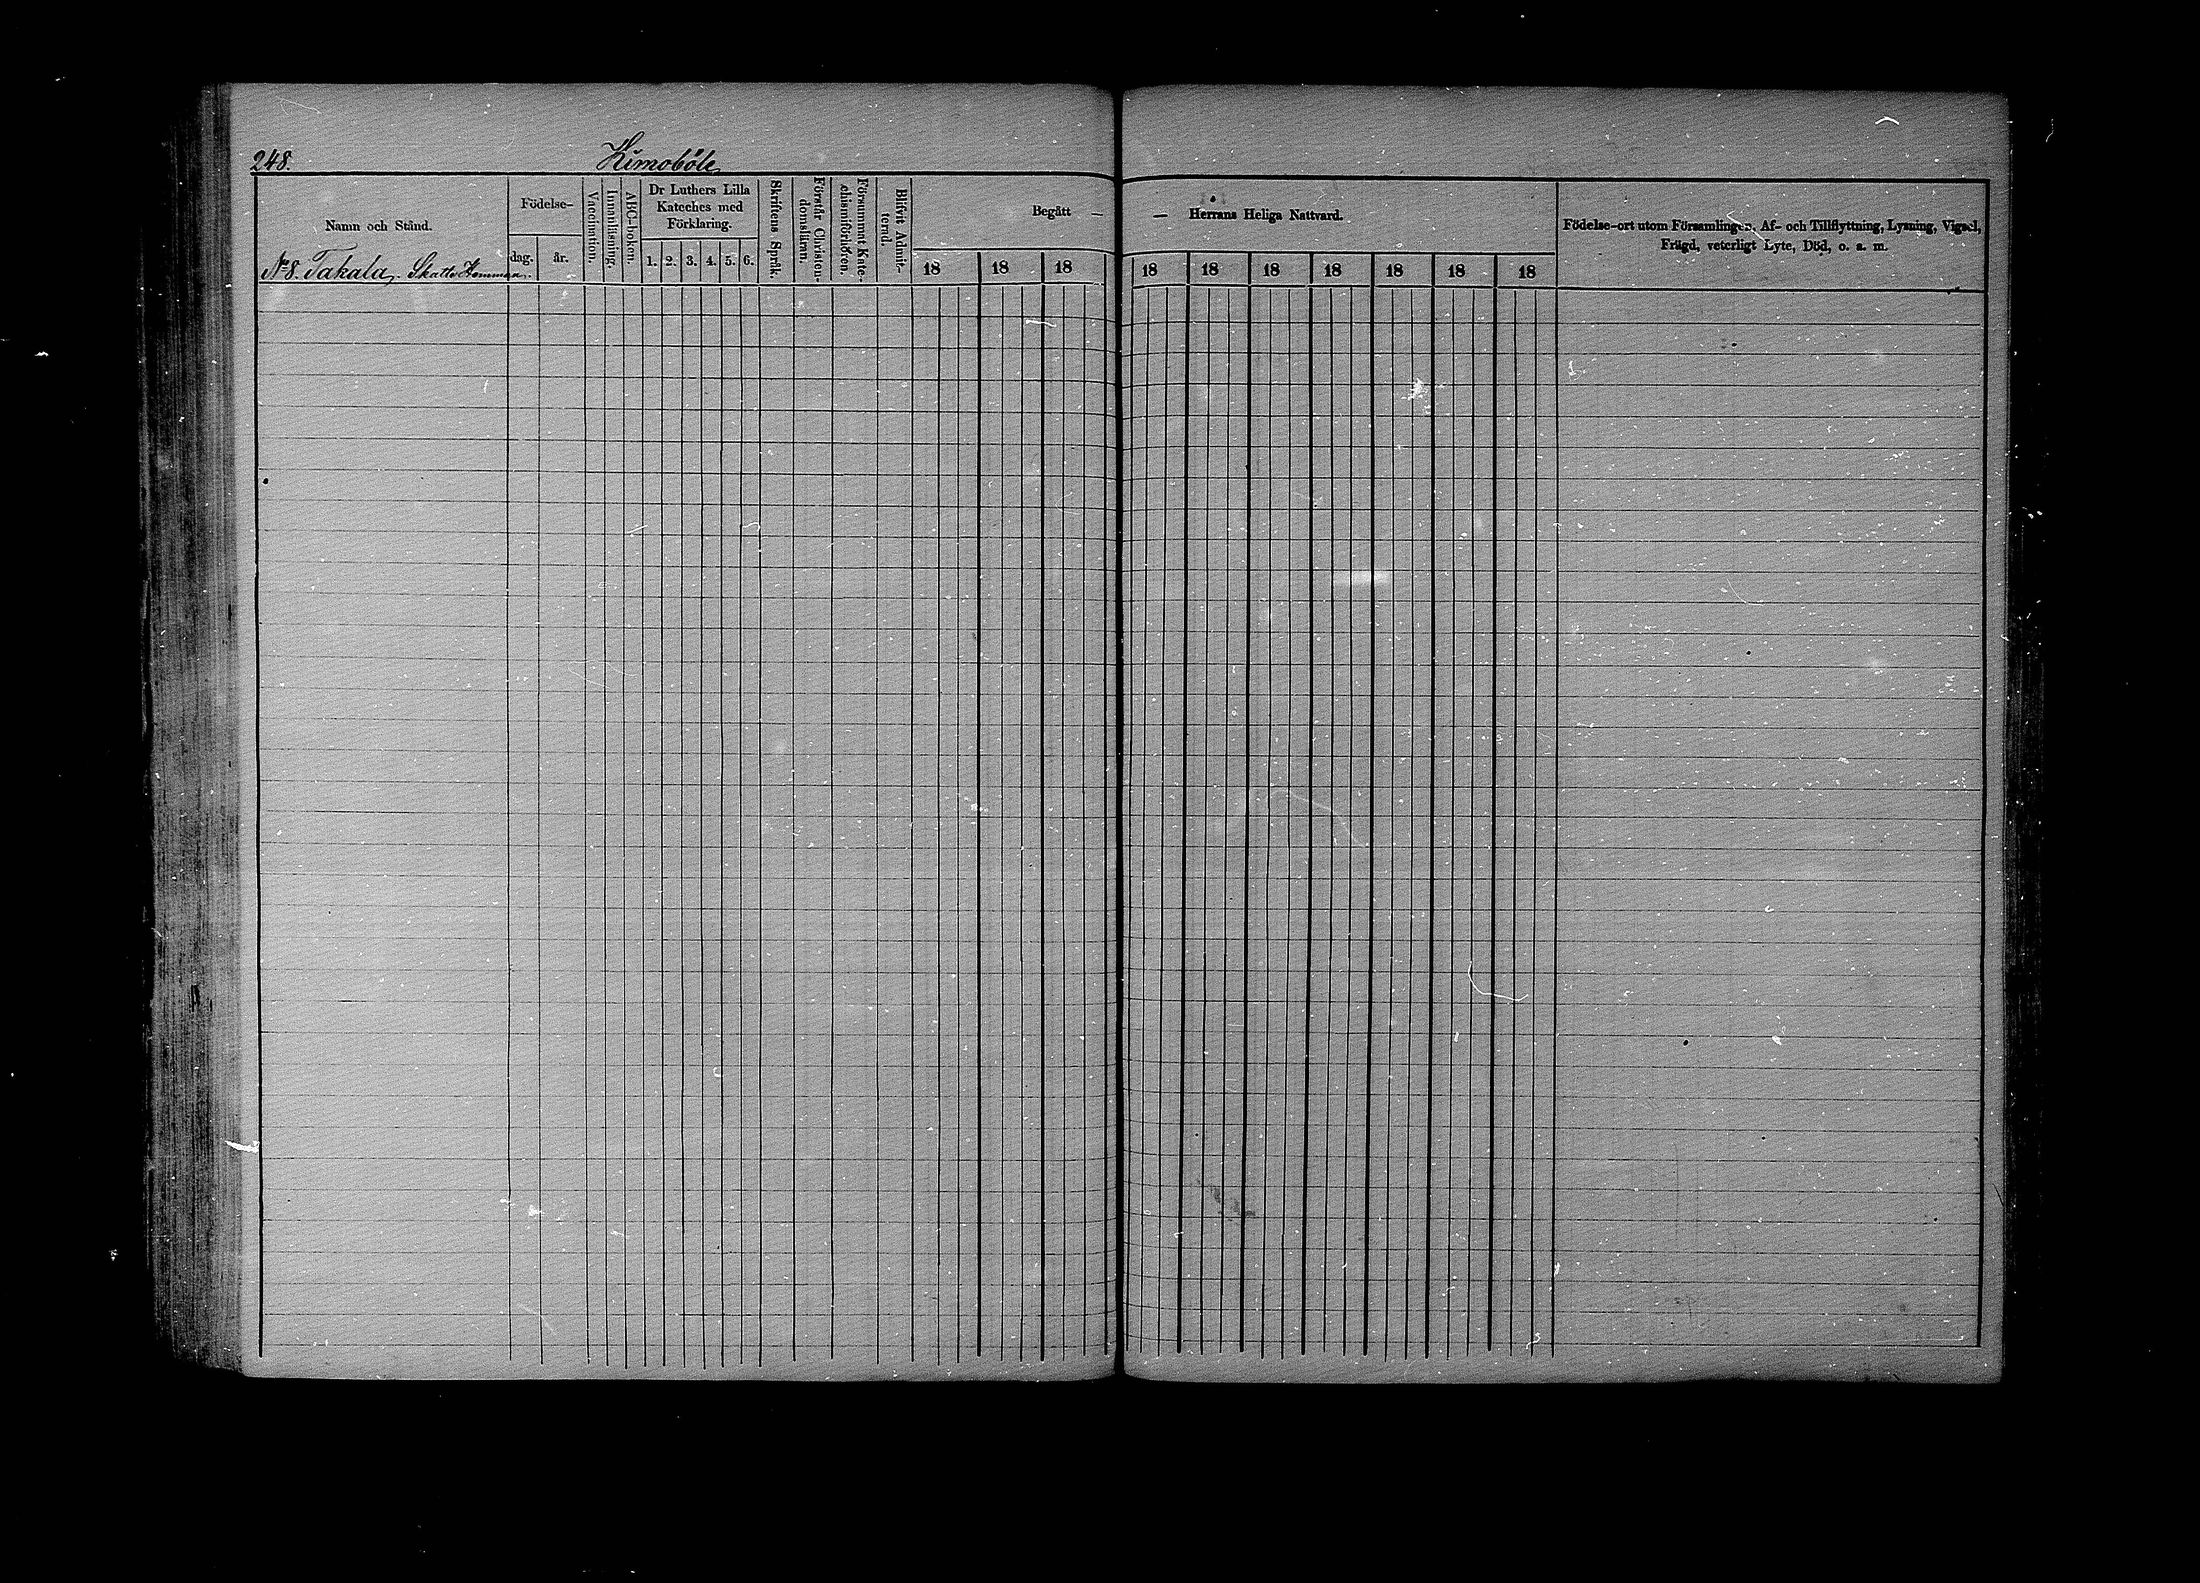 248. Kimoböle
Namn och Stånd.
No 8. Takala, Skatte Hemman.
Födelse-
dag. år.
Vaccination.
Innanläsning.
ABC-boken.
Dr Luthers Lilla
Kateches med
Förklaring.
1. 2. 3. 4. 5. 6.
Skriftens Språk.
Förstår Christen-
domsläran.
Försummat Kate-
chismiförhören.
Blifvit Admit-
terad.
Begått —
18 18 18
— Herrans Heliga Nattvard.
18 18 18 18 18 18 18
Födelse-ort utom Församlingen, Af- och Tillflyttning, Lysning, Vigsel,
Frägd, veterligt Lyte, Död, o. s. m.